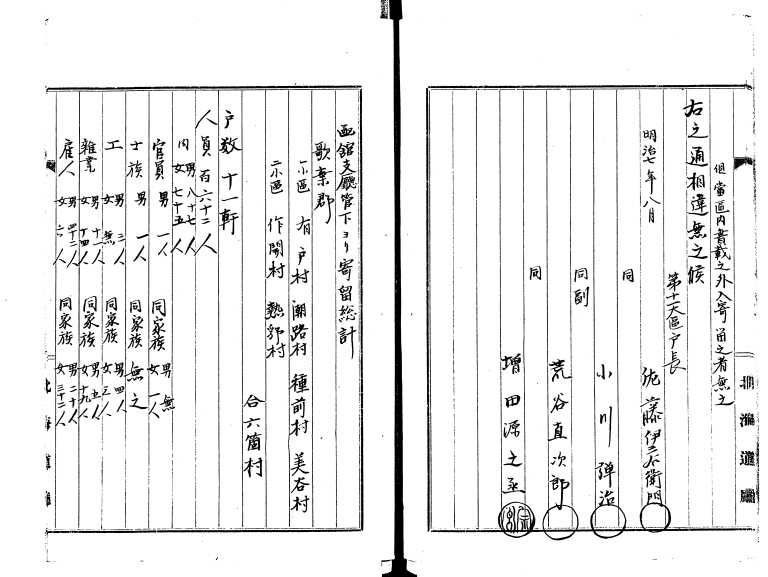 但當區内書載之外入寄留之者無之
右之通相違無之候
明治七年八月
第十一大區戸長
佐藤伊三右衛門
同
小川弾治
同副
荒谷直次郎
同
増田源之丞
函舘支廳管下ヨリ寄留総計
歌棄郡
一小區 有戸村 潮路村 種前村 美谷村
二小區 作開村 熱郛村
合六箇村
戸数 十一軒
人員 百六十二人
内 男 八十七人
女 七十五人
官員 男 一人 同家族 男 無
女 一人
士族 男 一人 同家族 無之
工 男 二人 同家族 男 四人
女 無 女 三人
雜業 男 十一人 同家族 男 五人
女 十四人 女 十九人
雇人 男 四十二人 同家族 男 二十人
女 六人 女 三十二人
北海道廳